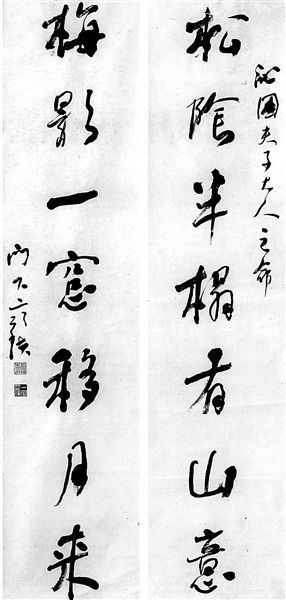 沁園夫子大人之命
松陰半榻有山意
梅影一窓移月来
門下